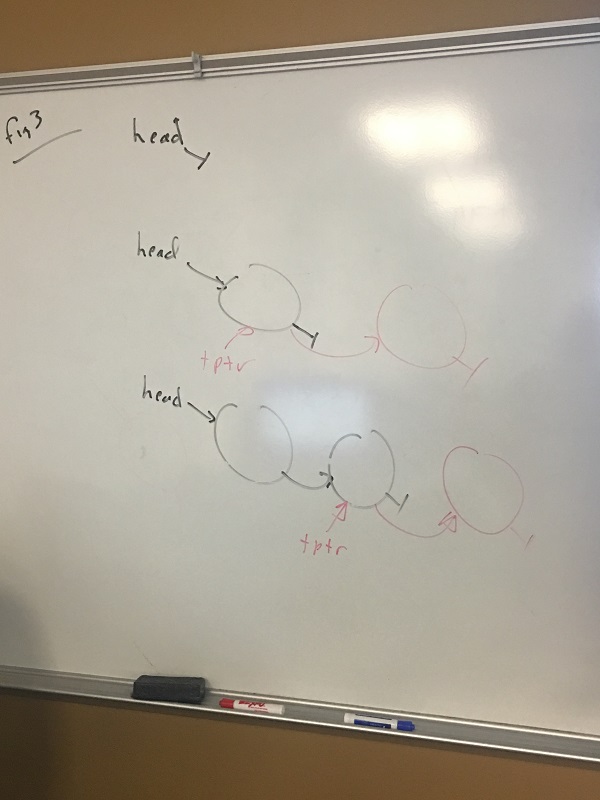 fig 3
head
head
tptr
head
tptr